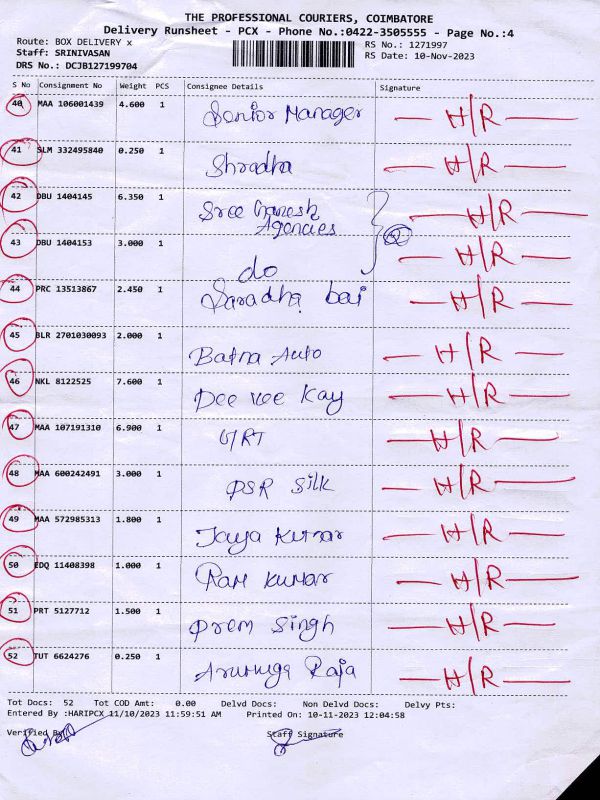 THE PROFESSIONAL COURIERS, COIMBATORE
Delivery Runsheet - PCX - Phone No.:0422-3505555 - Page No.:4
Route: BOX DELIVERY x
RS No.: 1271997
Staff: SRINIVASAN
RS Date: 10-Nov-2023
DRS No.: DCJB127199704
S No Consignment No Weight PCS Consignee Details Signature
40 MAA 106001439 4.600 1 Senior Manager H/R
41 SLM 332495840 0.250 1 Shradha H/R
42 DBU 1404145 6.350 1 Sree Ganesh H/R
Agencies
43 DBU 1404153 3.000 1 do H/R
44 PRC 13513867 2.450 1 Saradha bai H/R
45 BLR 2701030093 2.000 1 Batna Auto H/R
46 NKL 8122525 7.600 1 Dee vee Kay H/R
47 MAA 107191310 6.900 1 G/RT H/R
48 MAA 600242491 3.000 1 PSR Silk H/R
49 MAA 572985313 1.800 1 Jaya Kumar H/R
50 EDQ 11408398 1.000 1 Ram Kumar H/R
51 PRT 5127712 1.500 1 Prem Singh H/R
52 TUT 6624276 0.250 1 Arumuga Raja H/R
Tot Docs: 52 Tot COD Amt: 0.00 Delvd Docs: Non Delvd Docs: Delvy Pts:
Entered By :HARIPCX 11/10/2023 11:59:51 AM Printed On: 10-11-2023 12:04:58
Verified By Staff Signature